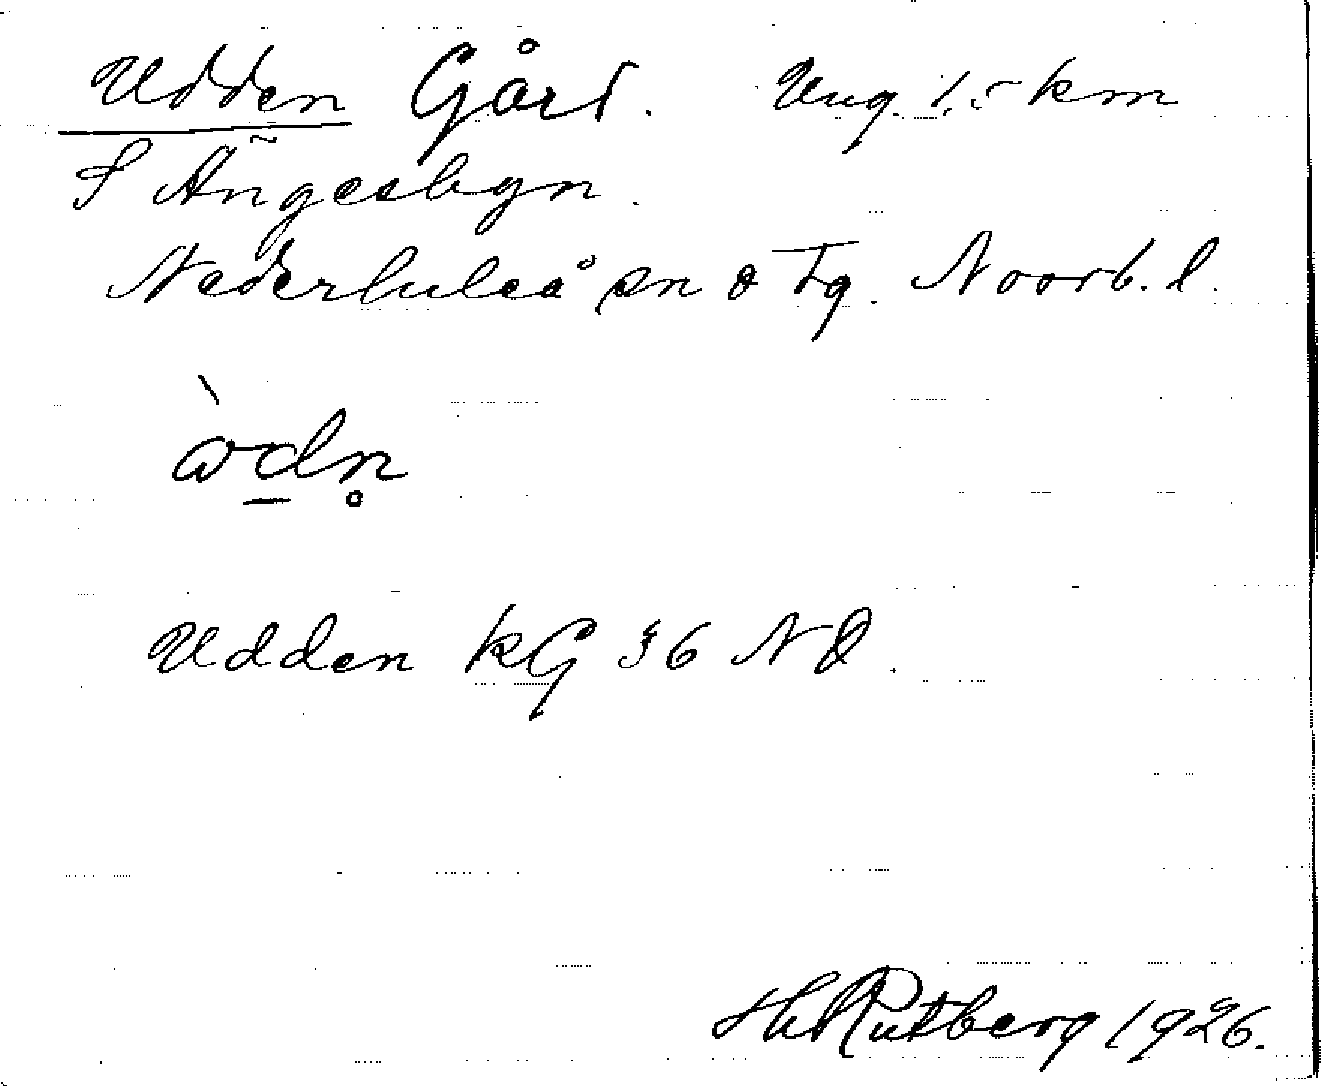 Udden Gård. Ung. 1,5 km
S Ängesbyn.
Nederluleå sn o tg. Norrb. l.
àdn̥
Udden KG 36 NO.
H Rutberg 1926.